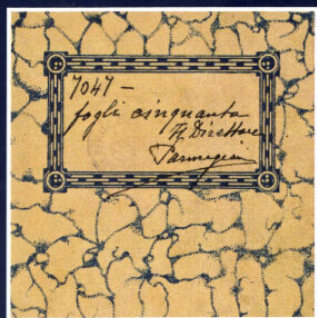 7047 -
fogli cinquanta
Il Direttore
Parmegiani